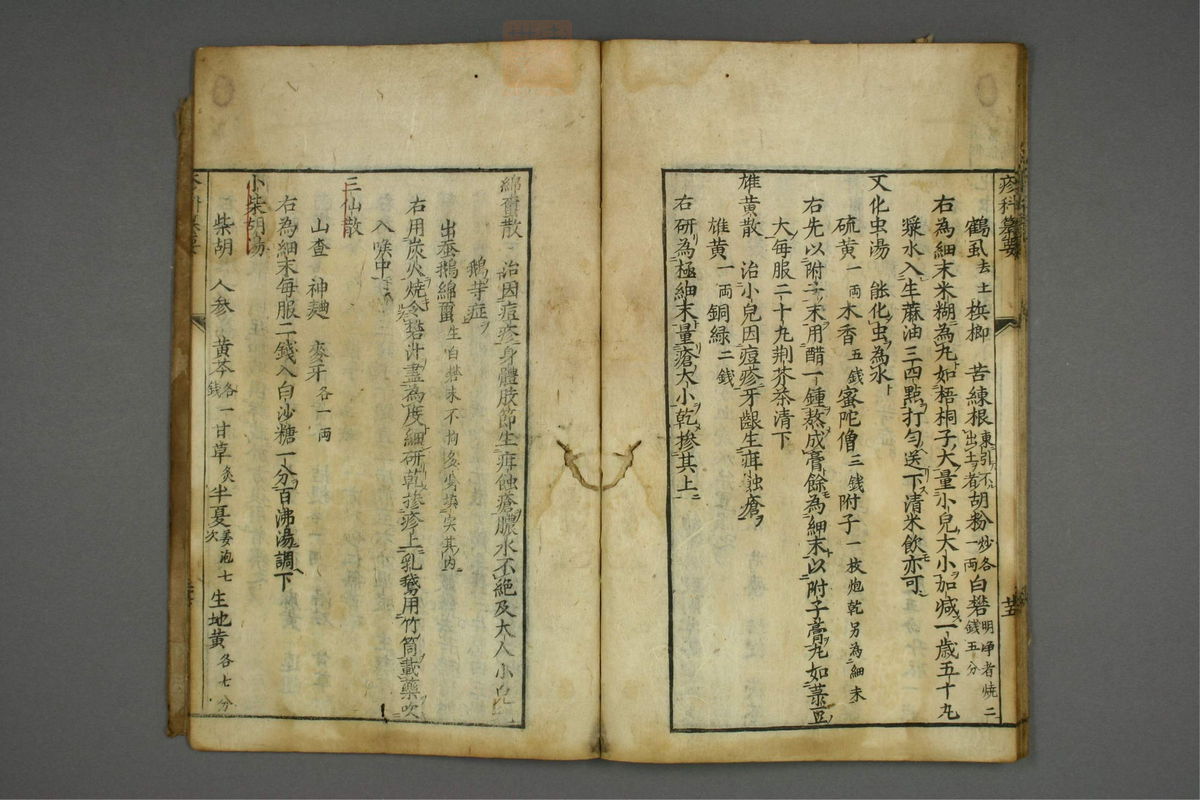 疹科纂要 廿五
鶴虱去土 檳榔 苦練根東引不出土者 胡粉炒各一両 白礬明淨者焼二錢五分
右為細末米糊為丸如梧桐子大量小兒大小加減一歳五十丸
漿水入生蔴油三四點打匀送下清米飲亦可
又化虫湯 能化虫為水
硫黄一両 木香五錢 蜜陀僧三錢 附子一枚炮乾另為細末
右先以附子末用醋一鍾熬成膏餘為細末以附子膏丸如菉豆
大每服二十九荆芥茶清下
雄黄散 治小兒因痘疹牙齦生疳蝕瘡
雄黄一両 銅緑二錢
右研為極細末量瘡大小乾摻其上
綿蠒散 治因痘疹身體肢節生疳蝕瘡膿水不絶及大人小兒乳
鵝等症
出蚕鵝綿蠒生白礬末不拘多少填実其内
右用炭火焼令礬汁盡為度細研乾摻疹上乳鵝用竹筒載藥吹
入喉中
三仙散
山查 神麯 麥牙各一両
右為細末每服二錢入白沙糖一分百沸湯調下
小柴胡湯
柴胡 人参 黄芩各一錢 甘草炙 半夏姜泡七次 生地黄各七分